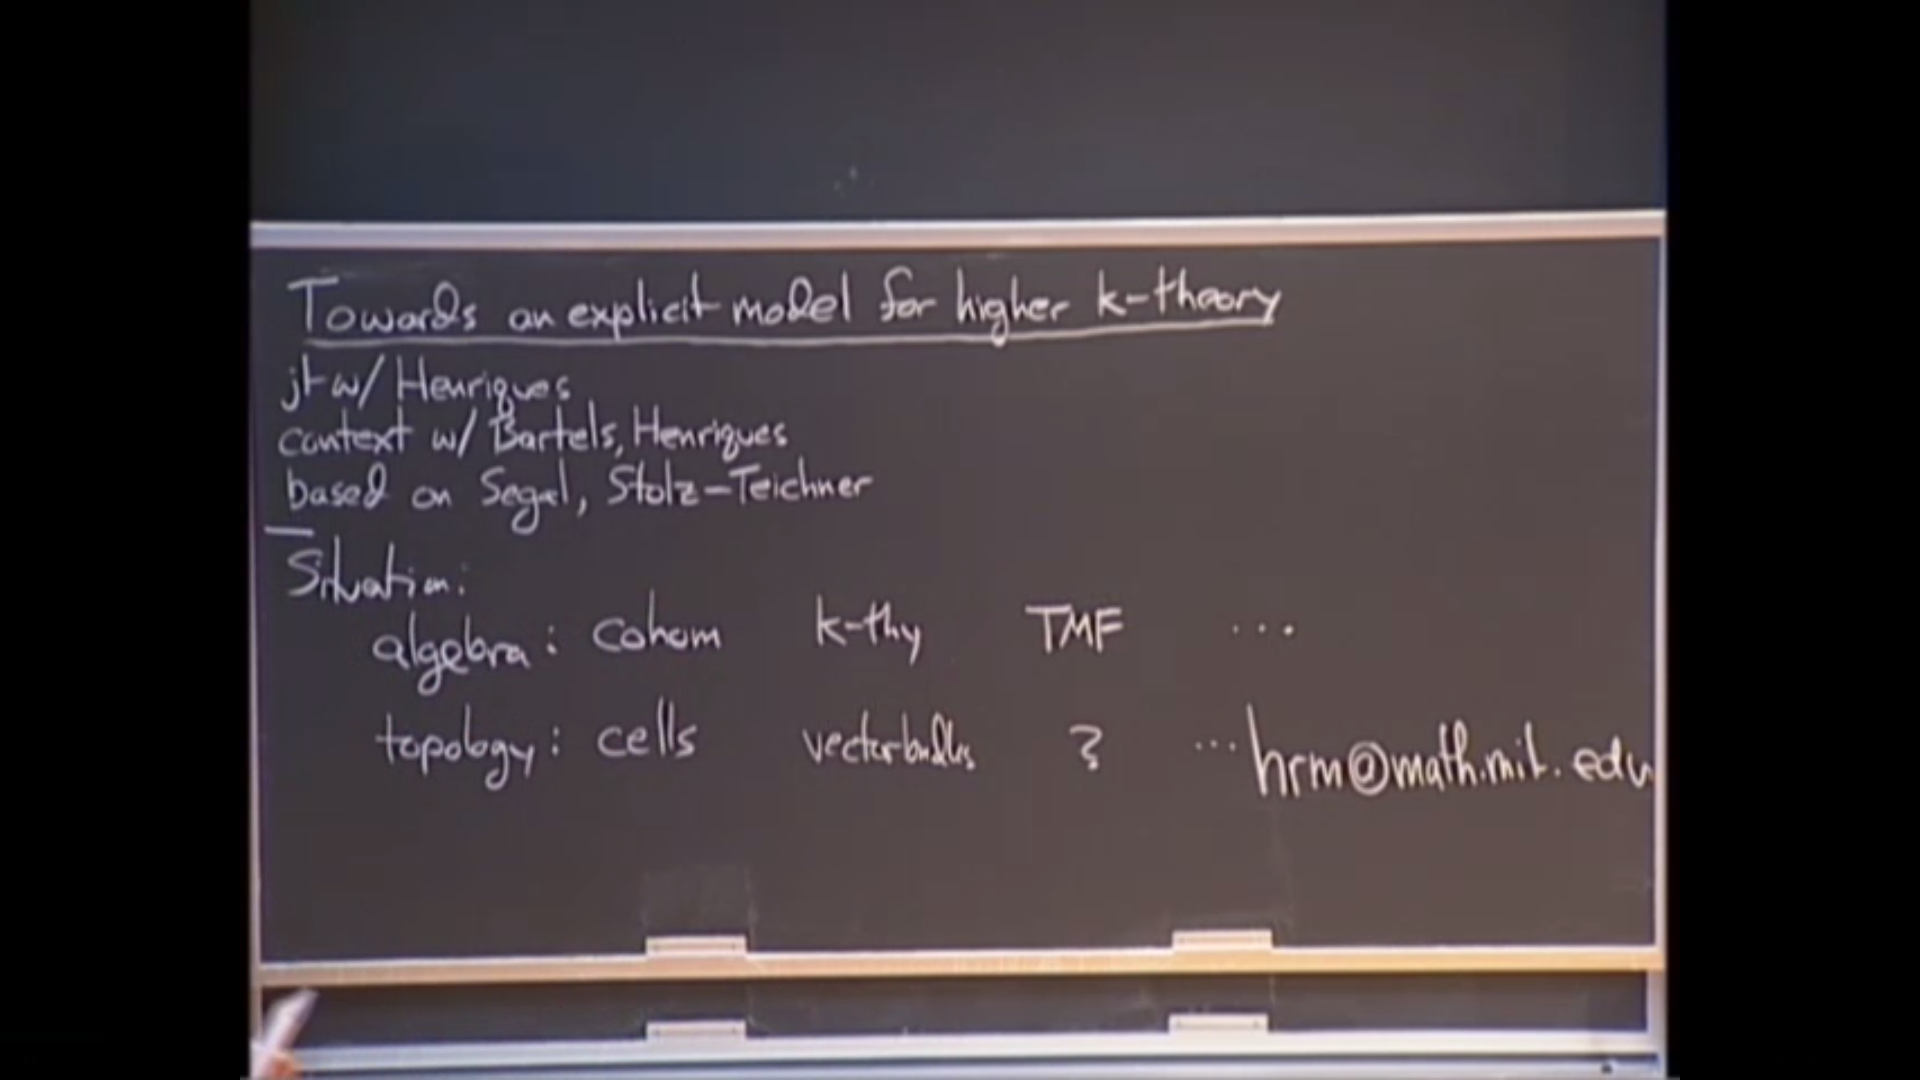 Towards an explicit model for higher k-theory
jt w/ Henriques
context w/ Bartels, Henriques
based on Segal, Stolz-Teichner
Situation:
algebra: cohom k-thy TMF ...
topology: cells vectorbundles ? ... hrm@math.mit.edu